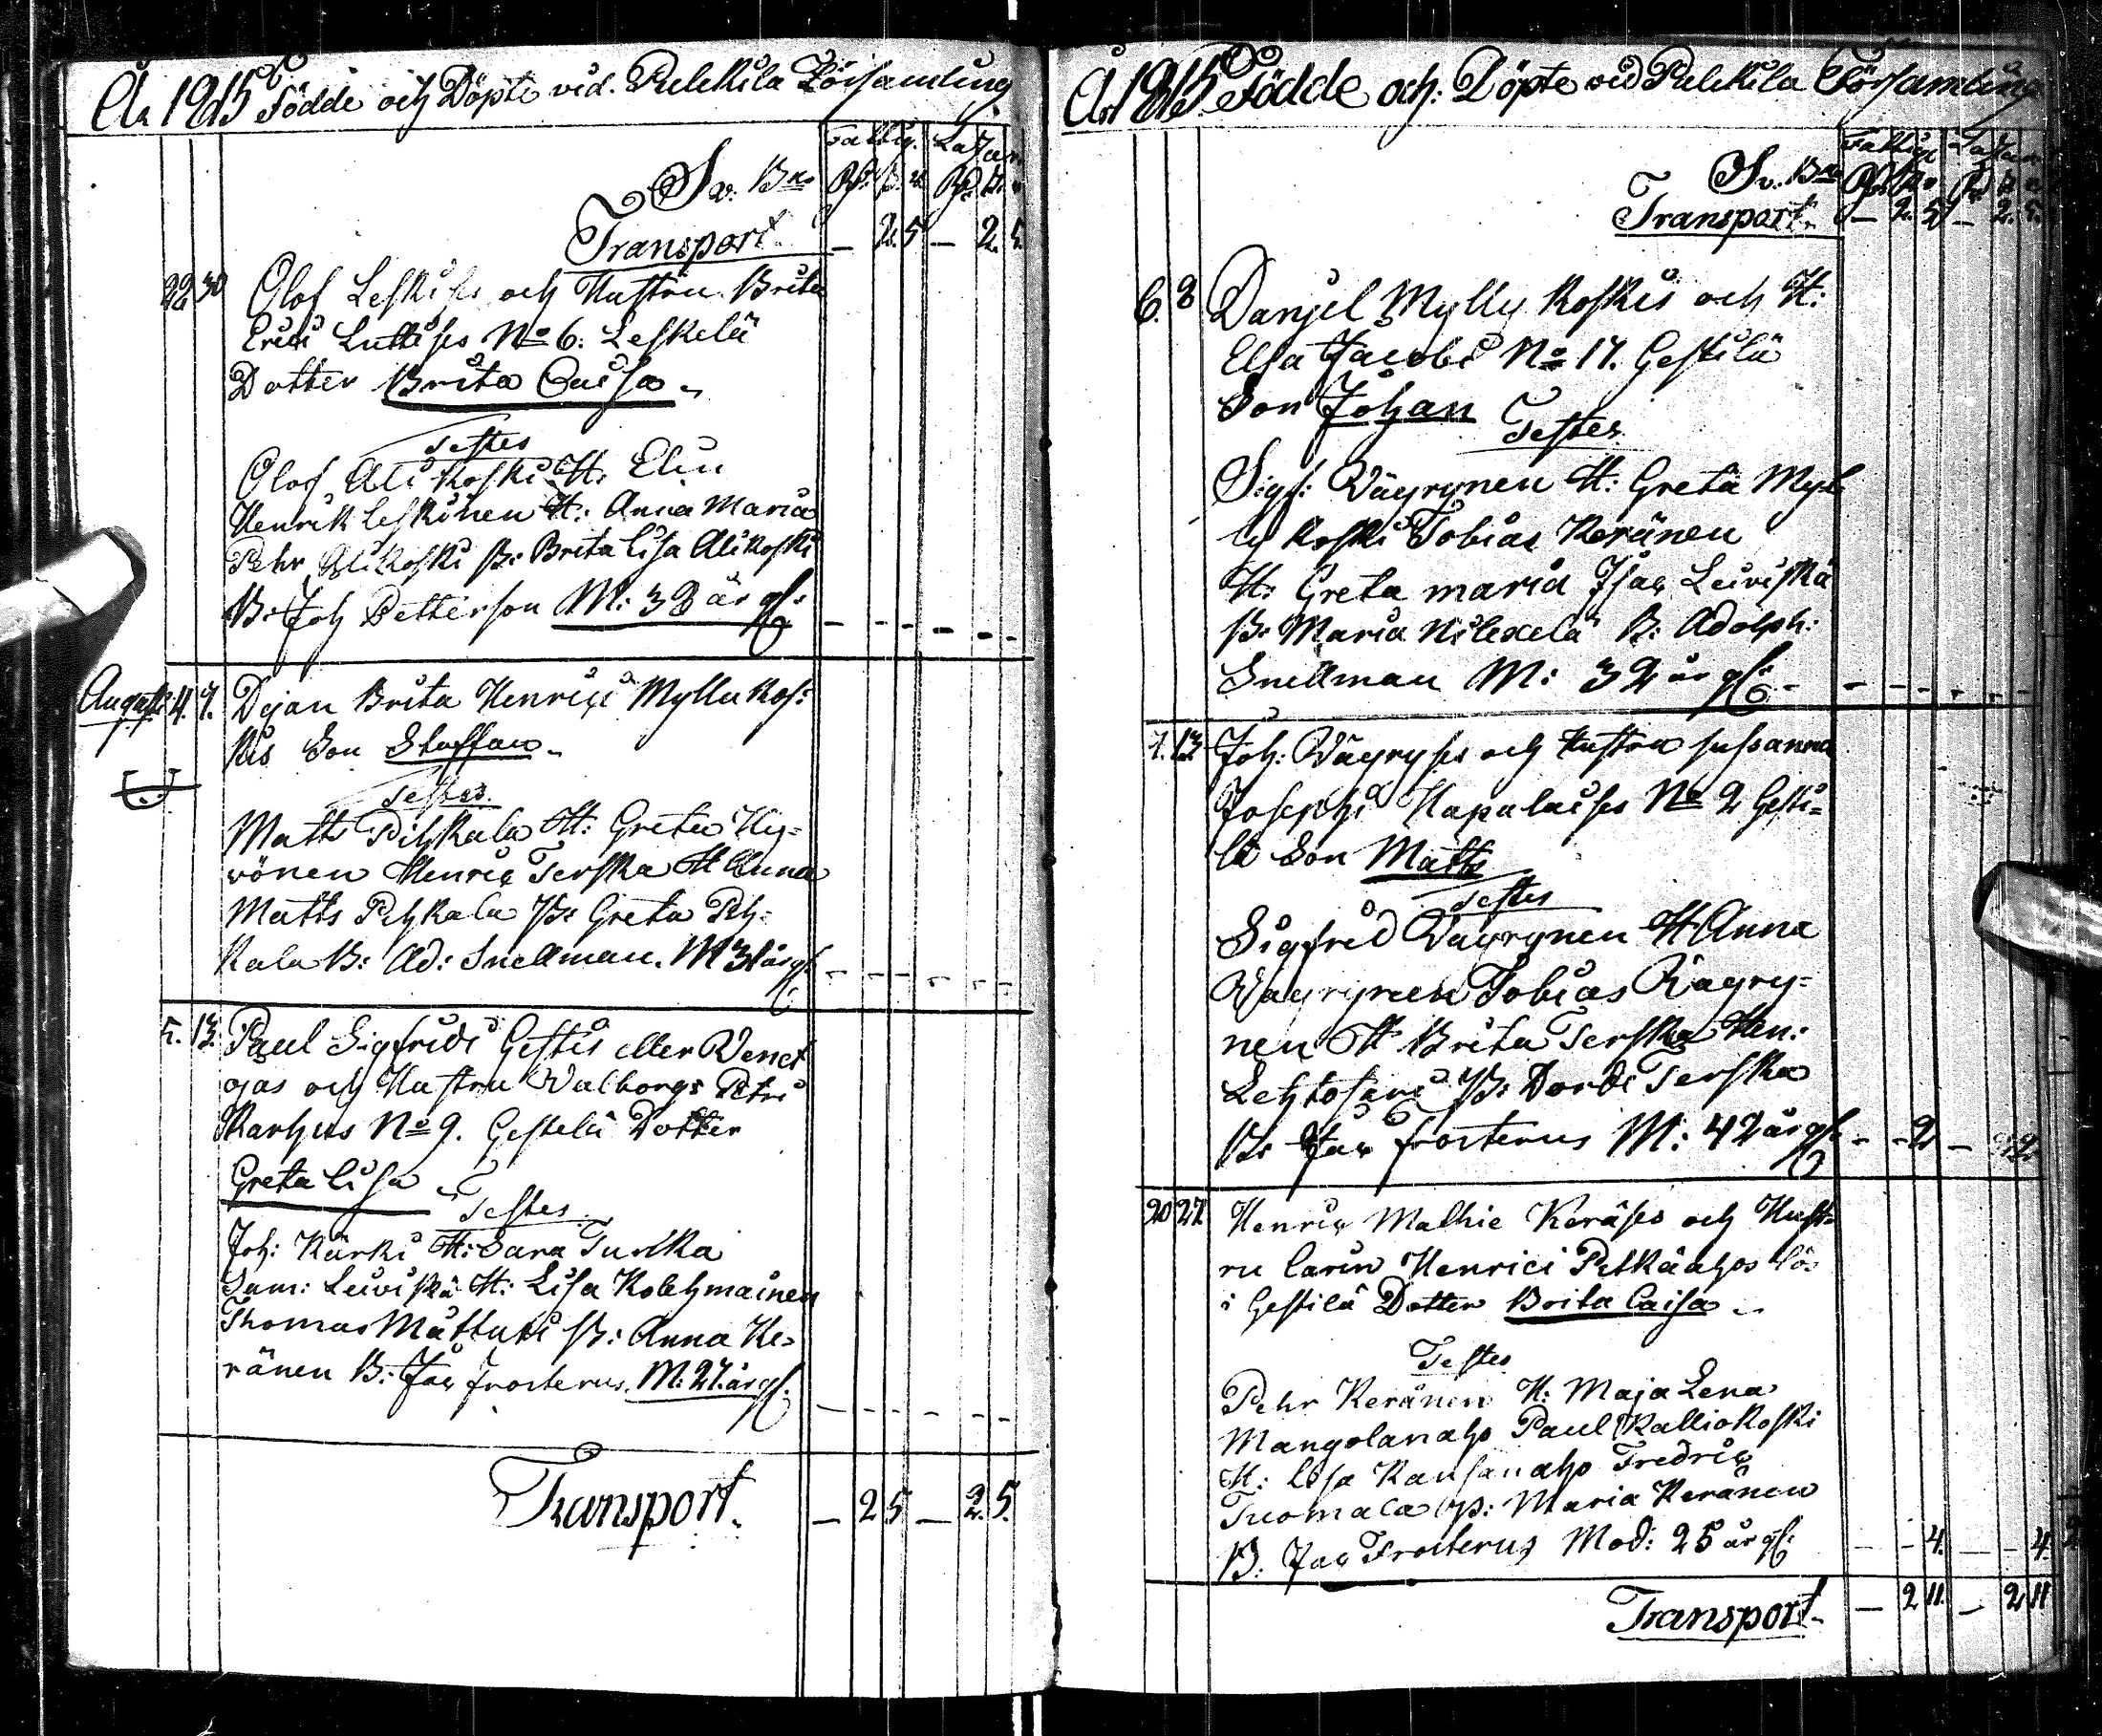 År 1815 Födde och Döpte vid Pulckila Församling
Fattig. Lazar.
Sv. Bco
Transport. — 2. 5 — 2. 5.
22 30 Olof Leskises och Hustru Brita
Erici Luttises No 6. Leskelä
Dotter Brita Caisa
Testes
Olof Alikoski H: Elin
Henrik Leskinen H: Anna Maria
Pehr Alikoski P: Brita Lisa Alikoski
B: Joh Petterson M: 38 år gl:
August: 4. 7. Dejan Brita Henrici Myllykos:
kis Son Staffan
Testes.
Matts Pihkala H: Greta Hy=
vönen Henric Terska H Anna
Matts Pihkala P: Greta Pih=
kala B: Ad: Snellman. M 31 år gl.
5. 13. Paul Sigfridi Gestis eller Venet
ojas och Hustru Walborgs Petri
Karhus No 9. Gestilä Dotter
Greta Lisa
Testes.
Joh: Kärki H: Sara Turkka
Sam: Leiviskä H: Lisa Kolehmainen
Thomas Mattuti P: Anna Ke=
ränen B: Jac Frosterus. M: 27. år gl.
Transport. — 2 5 — 2. 5.
År 1815 Födde och: Döpte vid Pulckila Församling
Fattig Lazar.
Sv. Bco
Transport. — 2. 5 — 2. 5.
6. 8 Danjel Myllykoskis och H:
Elsa Jacobi No 17. Gestilä
Son Johan
Testes
Sigf: Väyrynen H: Greta Myl=
lykoski Tobias Keränen
H: Greta Maria Isac Leiviskä
P: Maria Nilexelä B: Adolph:
Snellman M: 32 år gl:
7. 13 Joh: Väyryses och Hustru Susanna
Josephi Kapulaises No 2 Gesti=
lä Son Matts
Testes
Sigfrid Väyrynen H Anna
Wäyrynen Tobias Wäyry=
nen H Brita Terska Hen:
Lehtosari P: Dordi Terska
B: Jac Frosterus M: 42 år gl: — - 2 — - 2.
20 27. Henric Mathie Keräses och Hust=
ru Carin Henrici Pitkäahos lös
i Gestilä Dotter Brita Caisa
Testes
Pehr Keränen H: Maja Lena
Mangolanaho Paul Kalliokoski
H: Lisa Kansanaho Fredric
Tuomala P: Maria Keränen
B: Jac Frosterus Mod: 25 år gl: — - 4. — - 4.
Transport. — 2 11. — 2 11